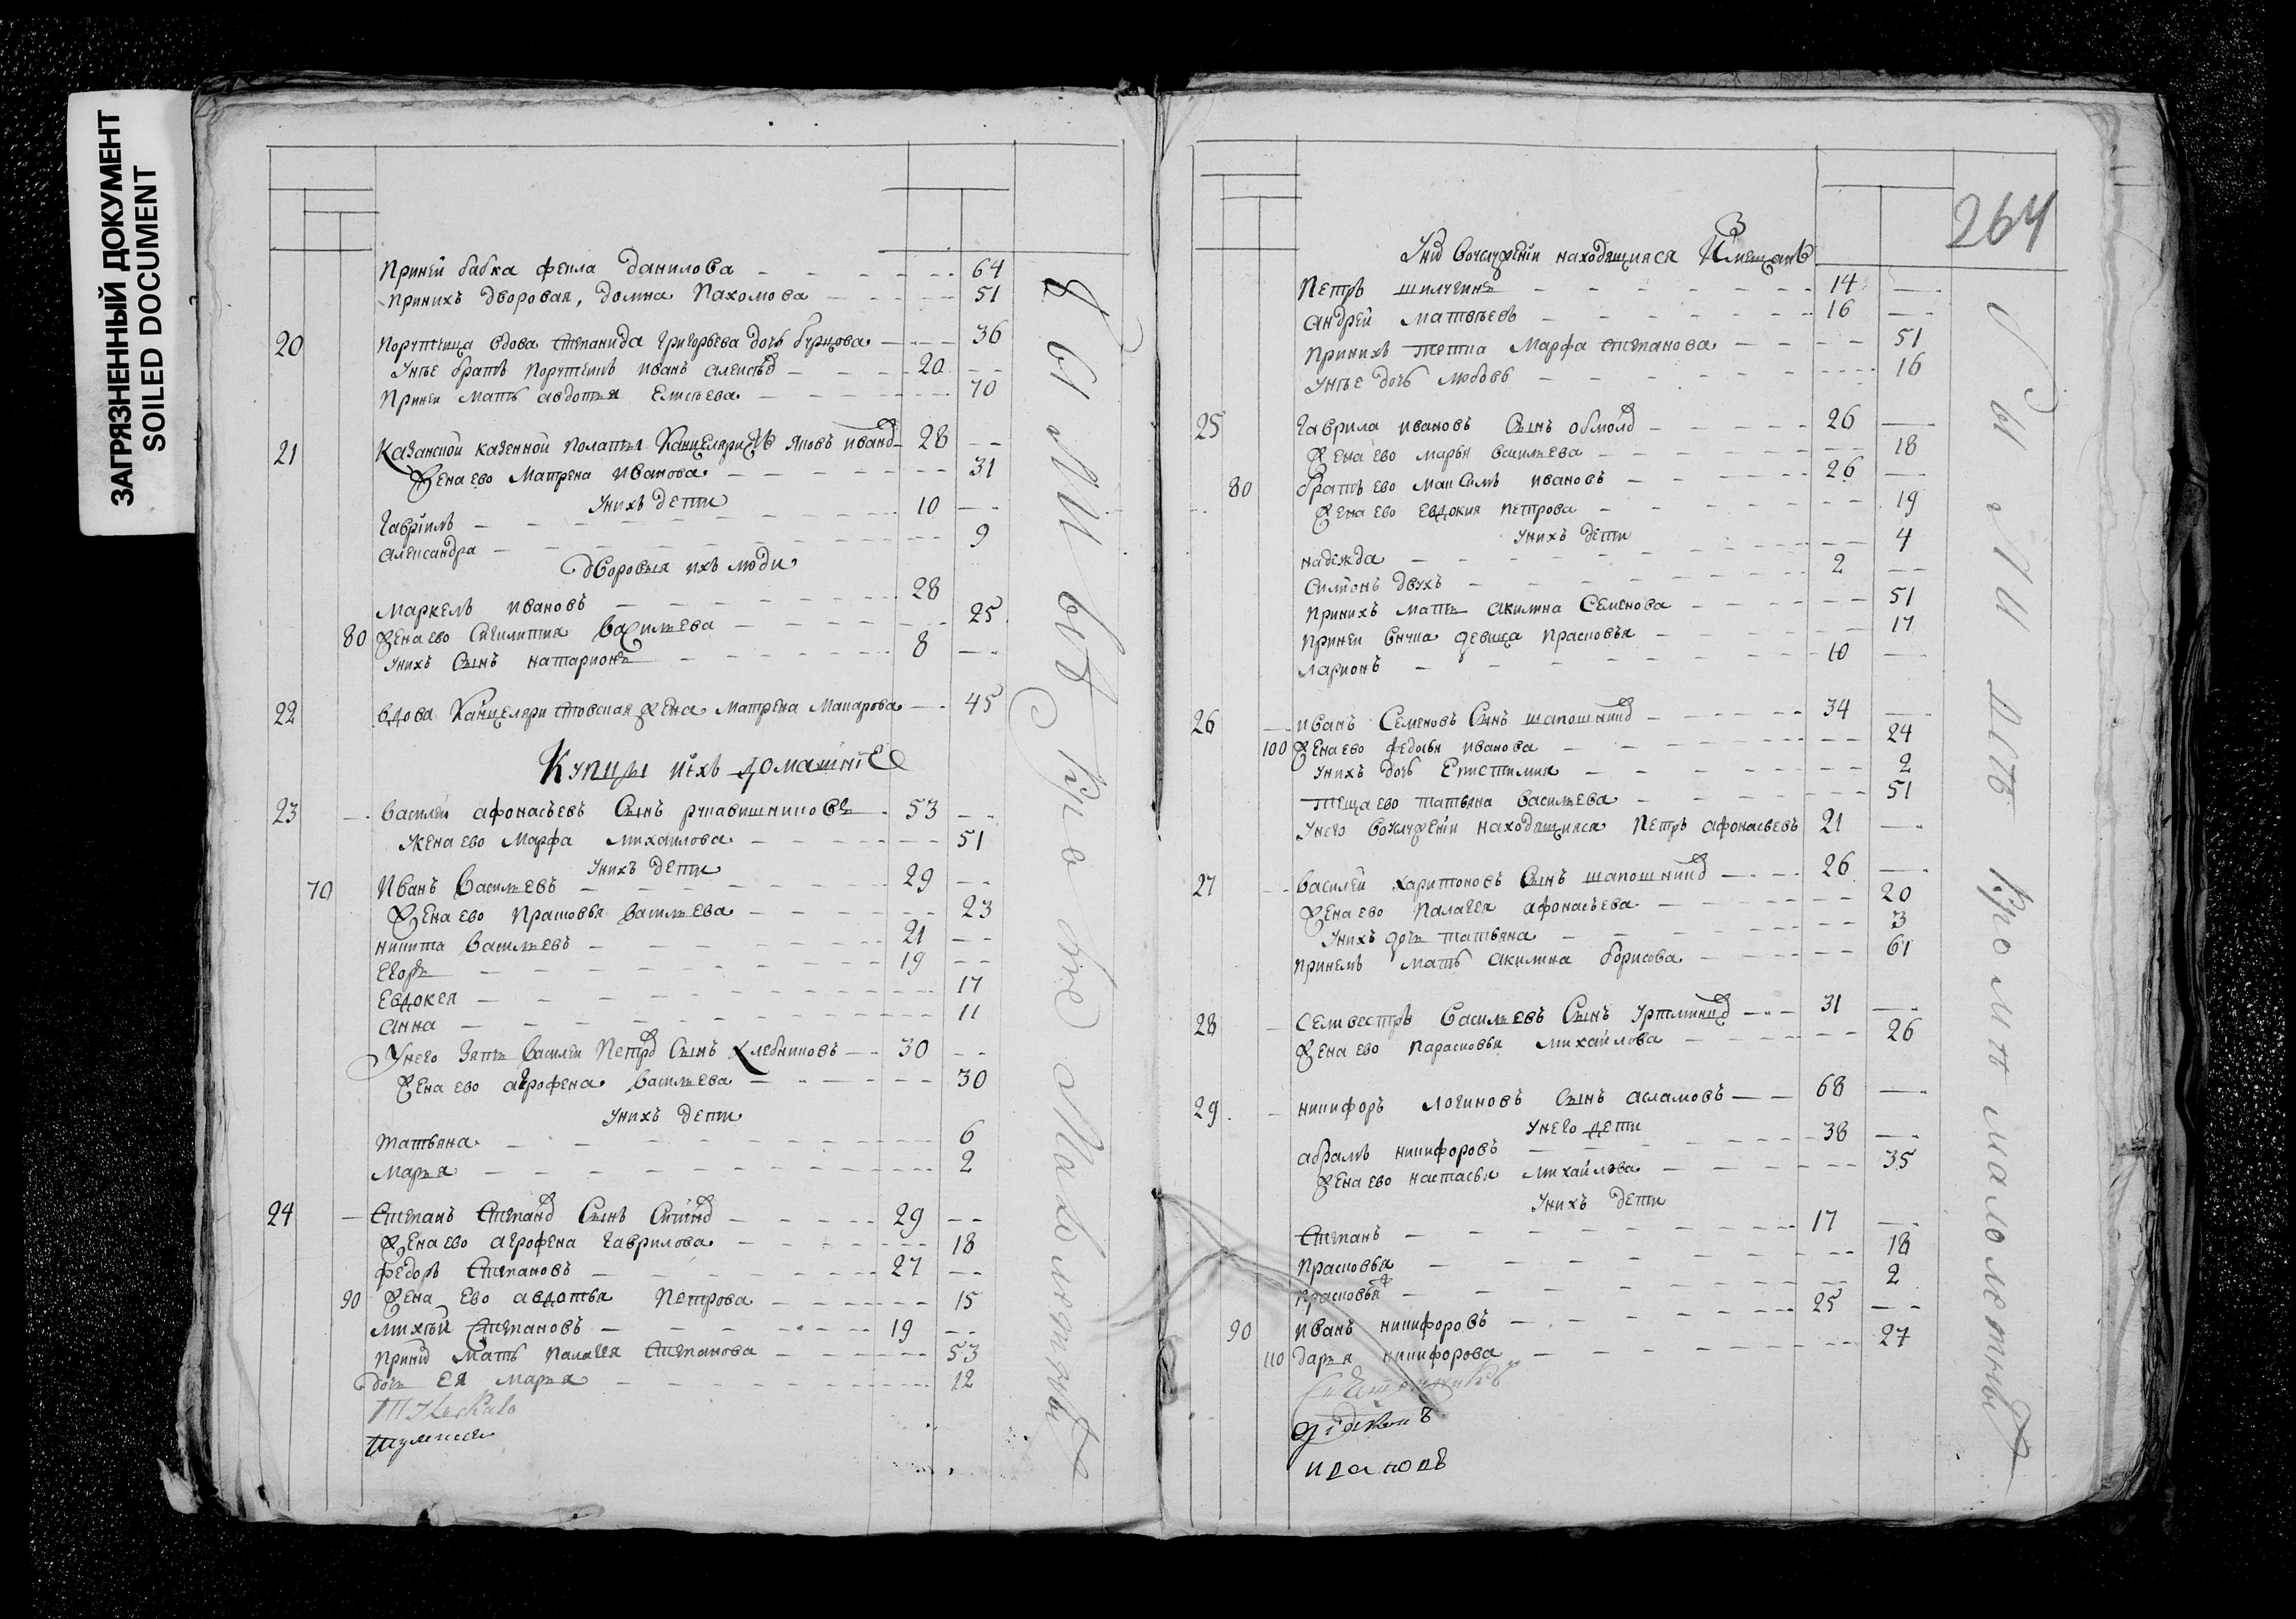 ЗАГРЯЗНЕННЫЙ ДОКУМЕНТ
SOILED DOCUMENT
приней бабка Фекла Данилова 64
принихъ дворовая, Домна Пахомова 51
20 порутчица вдова Степанида Григорьева дочь Бурцова 36
унее братъ порутчикъ Иванъ 20
приней мать Авдотья Елисеева 70
21 Казанской казенной полаты канцеляристъ Яковъ Ивановъ 28
жена ево Матрена Иванова 31
унихъ дети
Гаврiилъ 10
Александра 9
дворовыя ихъ люди
Маркелъ Ивановъ 28
80 жена ево Васильева 25
унихъ сынъ 8
22 вдова канцеляристовская жена Матрена Макарова 45
Купцы ихъ домашнiе
23 Василей Афонасьевъ сынъ Рукавишниковъ 53
жена ево Марфа Михаилова 51
унихъ дети
70 Иванъ Васильевъ 29
жена ево Прасковья Васильева 23
Никита Васильевъ 21
Егоръ 19
Евдокея 17
Анна 11
унего зять Василеи Петровъ сынъ Хлебниковъ 30
жена ево Агрофена Васильева 30
унихъ дети
Татьяна 6
Марья 2
24 Степанъ Степановъ сынъ 29
жена ево Агрофена Гаврилова 18
Федоръ Степановъ 27
90 жена ево Авдотья Петрова 15
Степановъ 19
мать Палагея Степанова 53
дочь ея Марья 12
264
уних вочслуженiи находящияся
Петръ 14
Андрей Матвеевъ 16
принихъ тетка Марфа Степанова 51
унее дочь Любовь 16
25 Гаврила Ивановъ сынъ 26
жена ево Марья Васильева 18
80 братъ ево Максимъ Ивановъ 26
жена ево Евдокия Петрова 19
унихъ дети
Надежда 4
двухъ 2
принихъ мать Акилина Семенова 51
приней внучка девица Прасковья 17
Ларионъ 10
26 Иванъ Семеновъ сынъ Шапошниковъ 34
100 жена ево Федосья Иванова 24
унихъ дочь Епистимия 2
теща ево Татьяна Васильева 51
унего находящияся Петръ Афонасьевъ 21
27 Василей Харитоновъ сынъ Шапошниковъ 26
жена ево Палагея Афонасьева 20
унихъ дочь Татьяна 3
принемъ мать Акилина Борисова 61
28 Селивестръ Васильевъ сынъ 31
жена ево Парасковья Михайлова 26
29 Никифоръ Логиновъ сынъ Асламовъ 68
унего дети
Абрамъ Никифоровъ 38
жена ево Настасья Михайлова 35
унихъ дети
Степанъ 17
Прасковья 18
Прасковья 2
90 Иванъ Никифоровъ 25
110 Дарья Никифорова 27
дiаконъ
Ивановъ